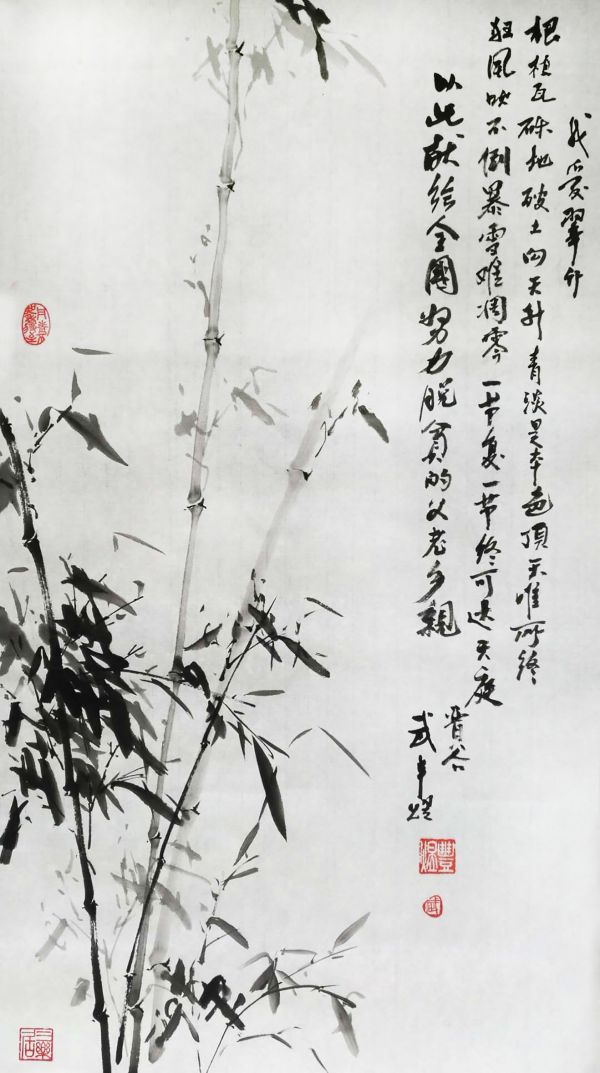 我爱翠竹
根植瓦砾地破土向天升青淡是本色頂天唯所终
狂風吹不倒暴雪难凋零一节复一节终可达天庭
以此献给全國努力脱贫的父老乡親
晋谷
武丰煜
三樂居